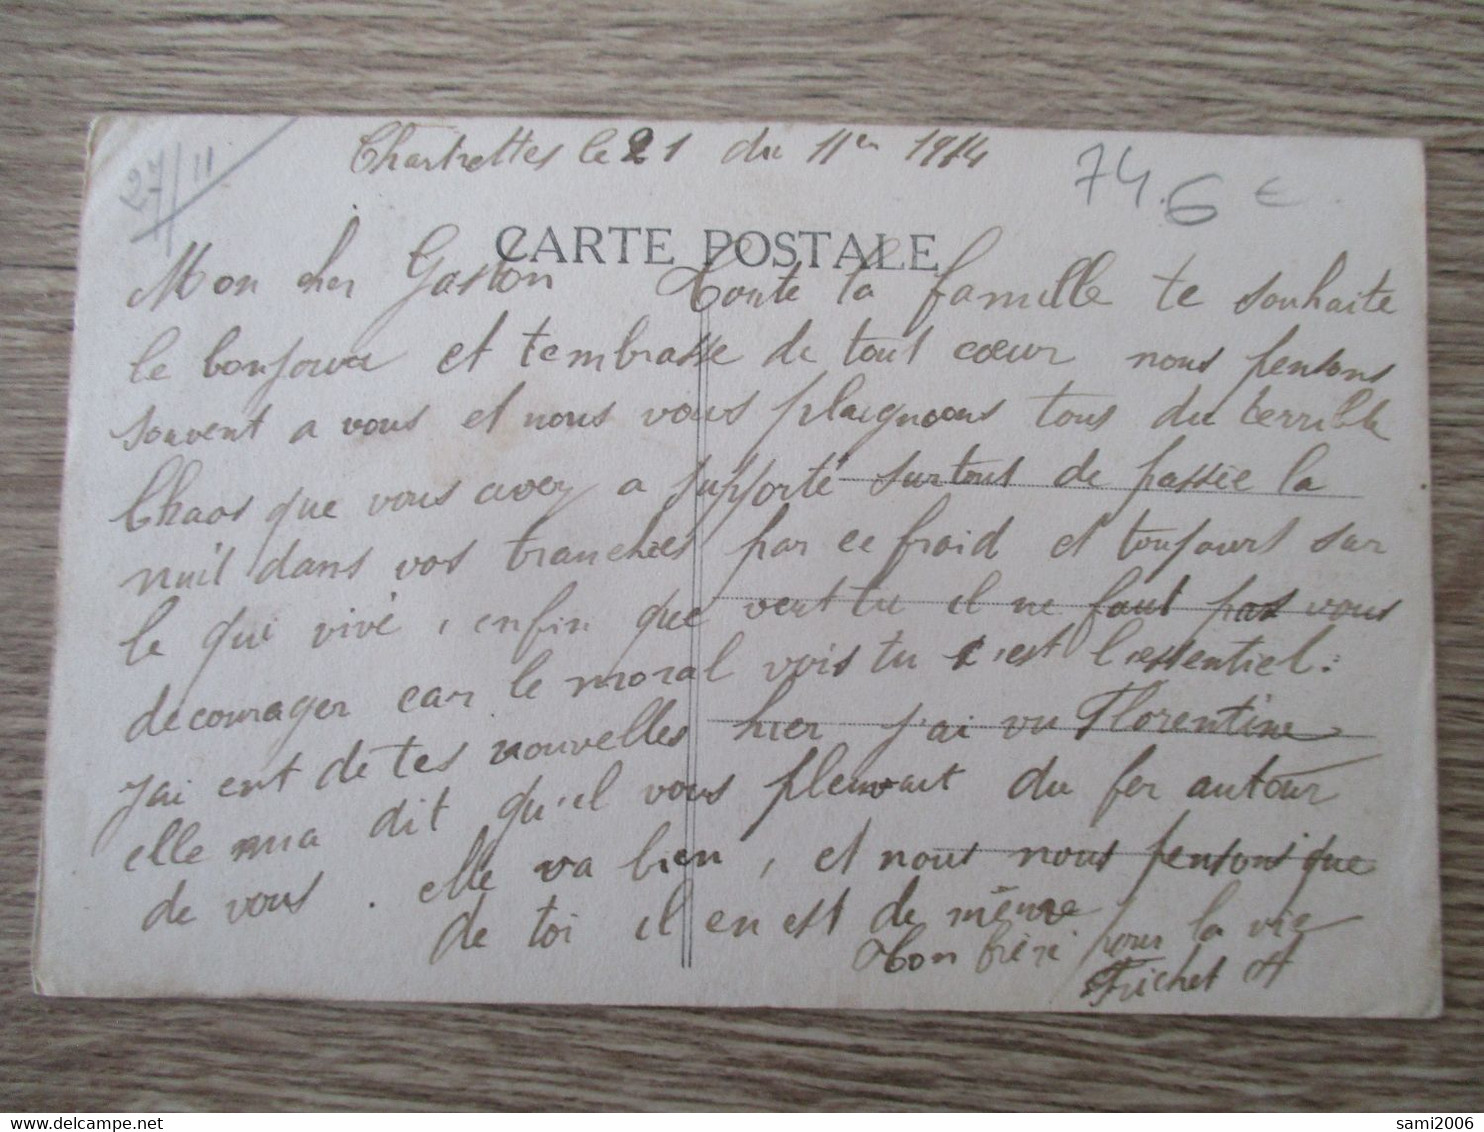 Chartrettes le 21 du 11en 1914
27/11
74
6 €
CARTE POSTALE
Mon cher Gaston Toute la famille te souhaite
le bonjour et t'embrasse de tout cœur nous pensons
souvent a vous et nous vous plaignons tous du terrible
Chaos que vous avez a supporté surtout de passée la
nuit dans vos tranchées par ce froid et toujours sur
le qui vivé, enfin que veut tu il ne faut pas vous
decourager car le moral vois tu c'est l'essentiel.
j'ai eut de tes nouvelles hier j'ai vu Florentine
elle ma dit qu'il vous pleuvait du fer autour
de vous. elle va bien, et nous nous pensons que
de toi il en est de même
Ton frère pour la vie
Frichet A
sami2006